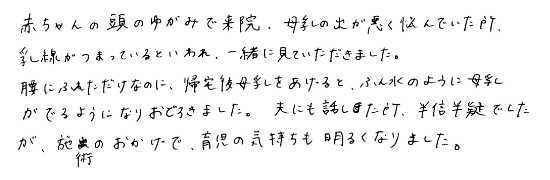 赤ちゃんの頭のゆがみで来院、母乳の出が悪く悩んでいたが、
乳線がつまっているといわれ、一緒に見ていただきました。
腰にふれただけなのに、帰宅後母乳をあげると、ふん水のように母乳
がでるようになりおどろきました。 夫にも話しましたが、半信半疑でした
が、施術のおかげで、育児の気持ちも明るくなりました。